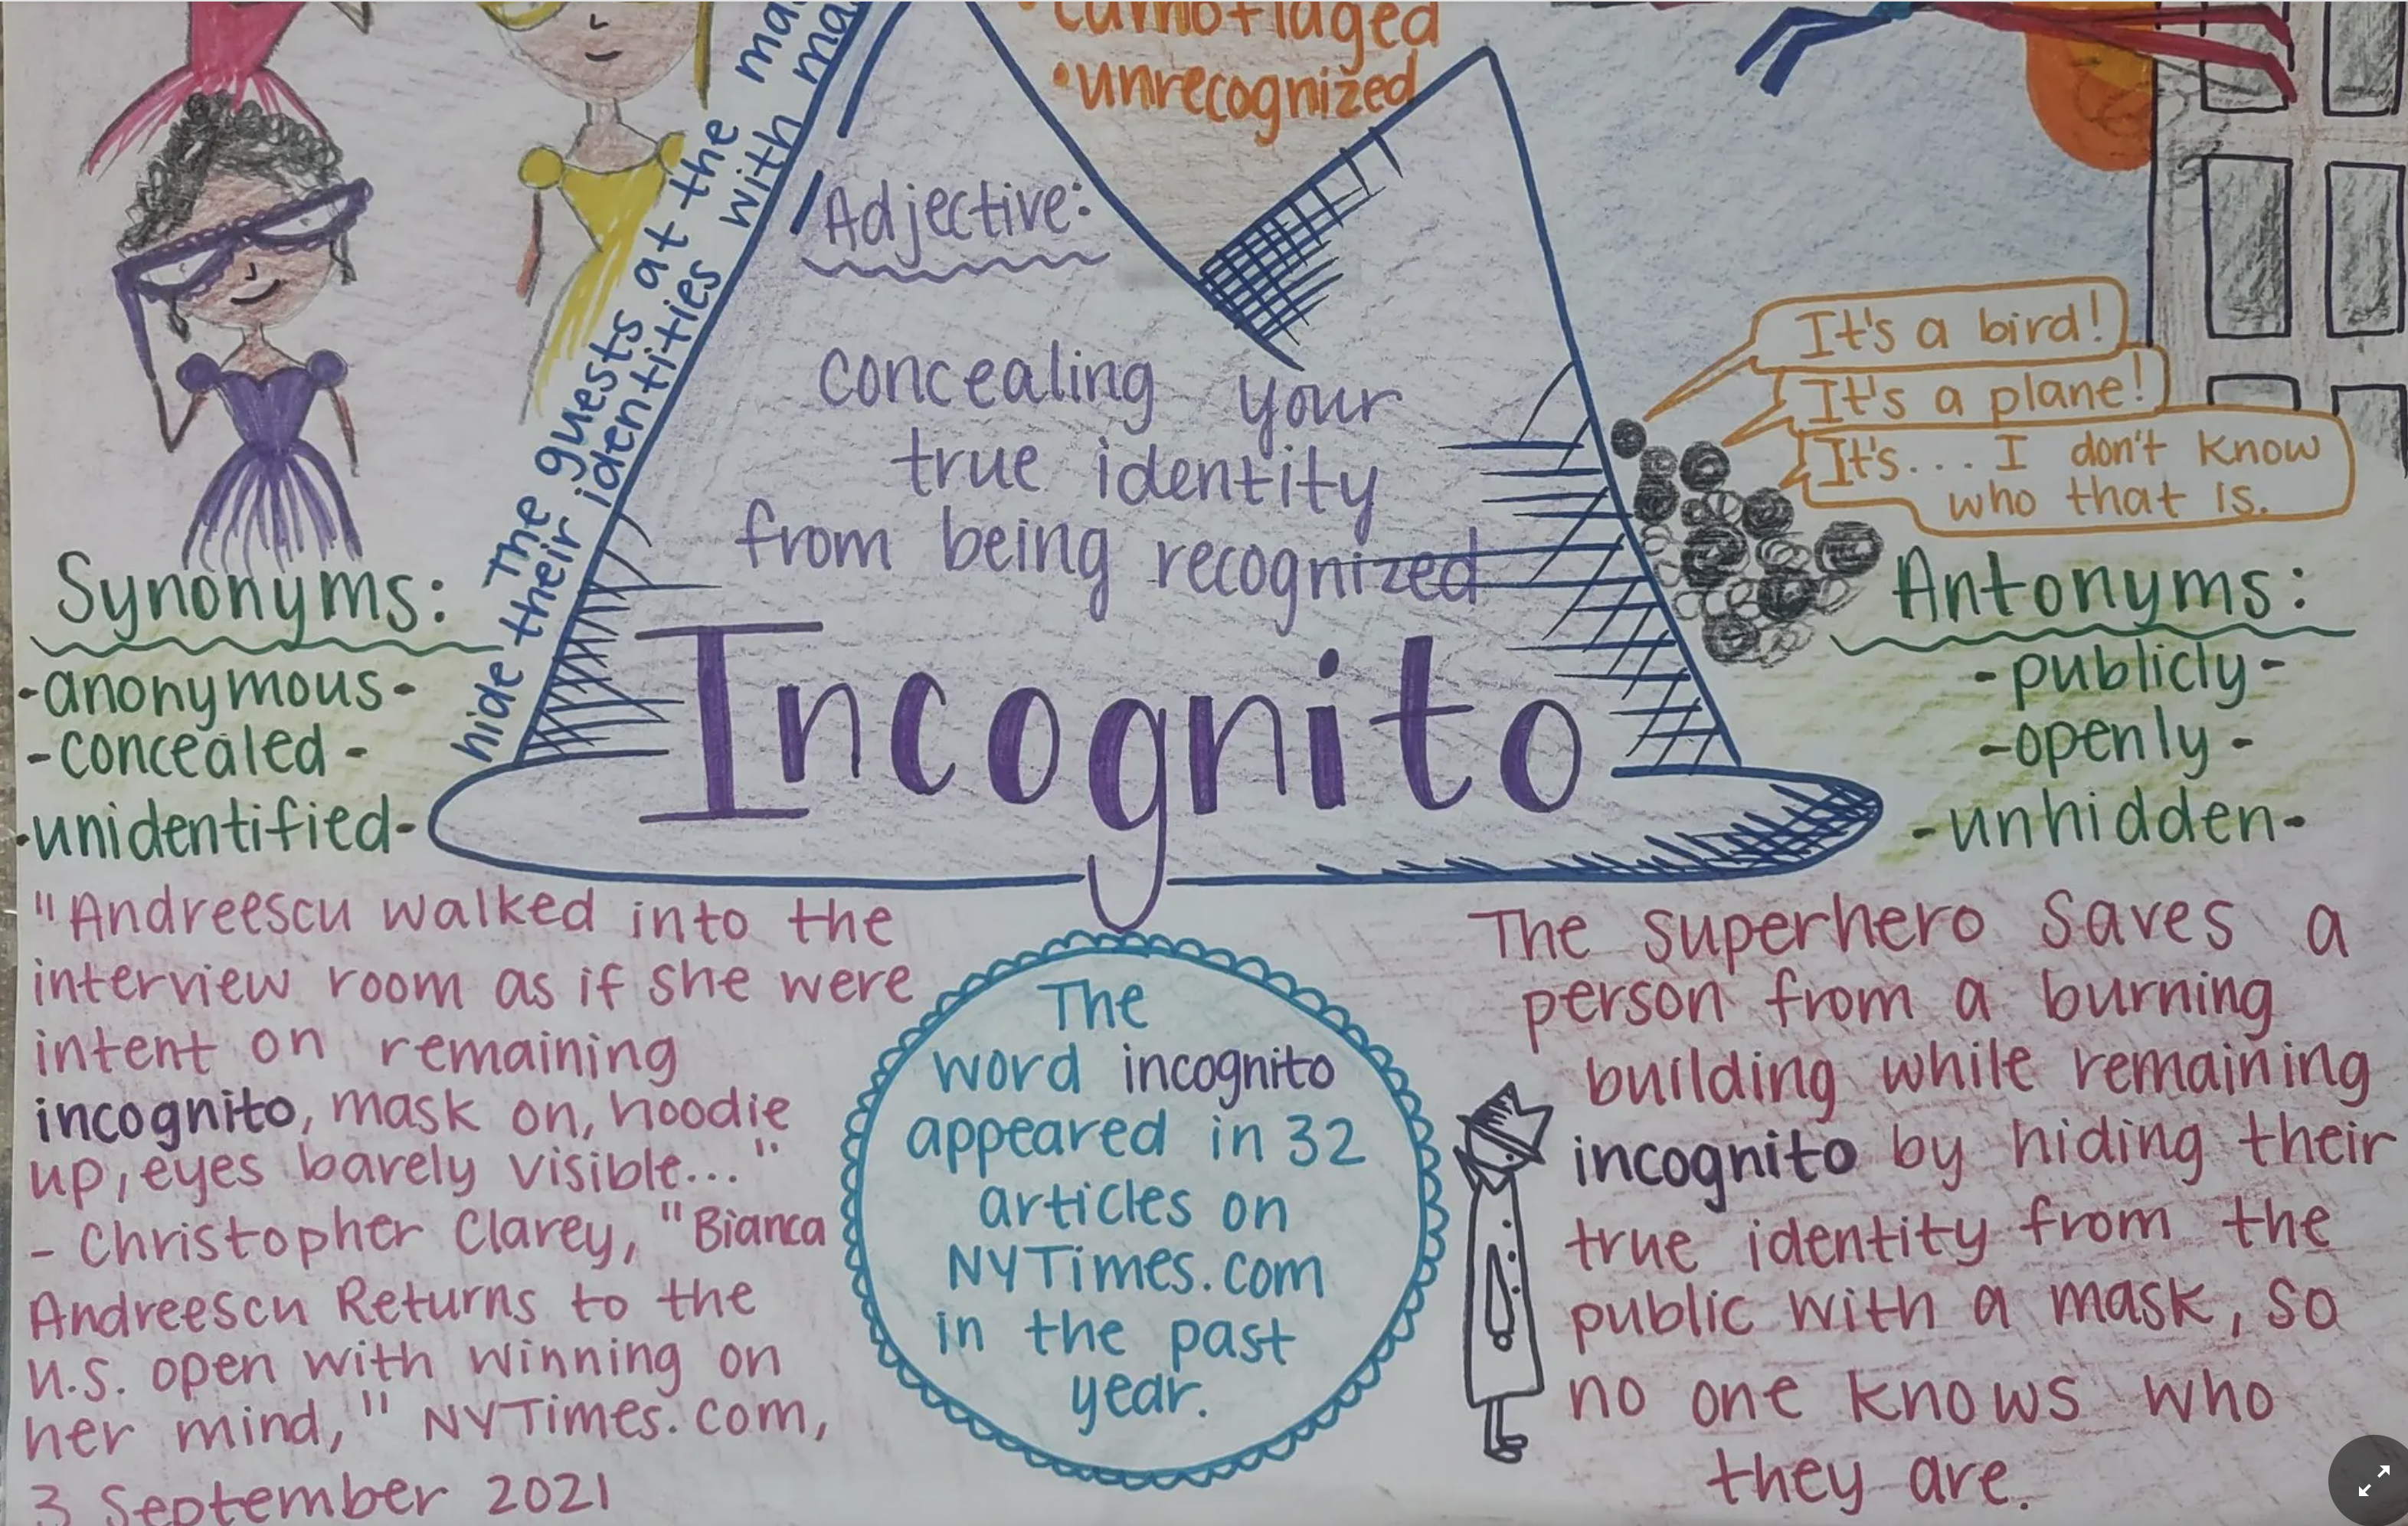 camoflaged
•unrecognized
Adjective:
concealing your
true identity
from being recognized
Incognito
The guests at the
hide their identities with
It's a bird!
It's a plane!
It's... I don't know
who that is.
Synonyms:
-anonymous-
-concealed-
-unidentified-
Antonyms:
-publicly-
-openly-
-unhidden-
"Andreescu walked into the
interview room as if she were
intent on remaining
incognito, mask on, hoodie
up, eyes barely visible..."
- Christopher Clarey, "Bianca
Andreescu Returns to the
U.S. open with winning on
her mind," NYTimes.com,
3 September 2021
The
word incognito
appeared in 32
articles on
NYTimes.com
in the past
year.
The superhero saves a
person from a burning
building while remaining
incognito by hiding their
true identity from the
public with a mask, so
no one knows who
they are.